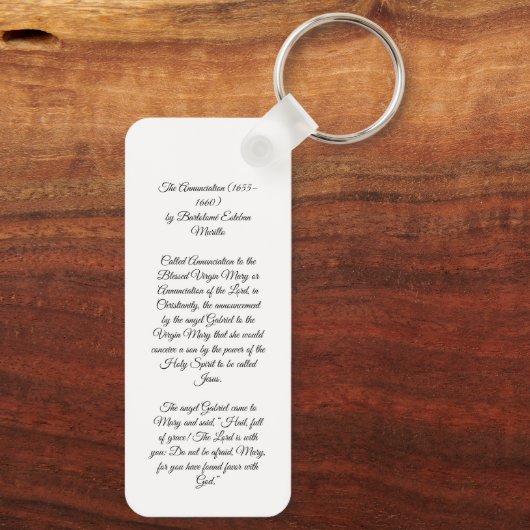 The Annunciation (1655–
1660)
by Bartolomé Esteban
Murillo
Called Annunciation to the
Blessed Virgin Mary or
Annunciation of the Lord, in
Christianity, the announcement
by the angel Gabriel to the
Virgin Mary that she would
conceive a son by the power of the
Holy Spirit to be called
Jesus.
The angel Gabriel came to
Mary and said, “Hail, full
of grace! The Lord is with
you; Do not be afraid, Mary,
for you have found favor with
God.”